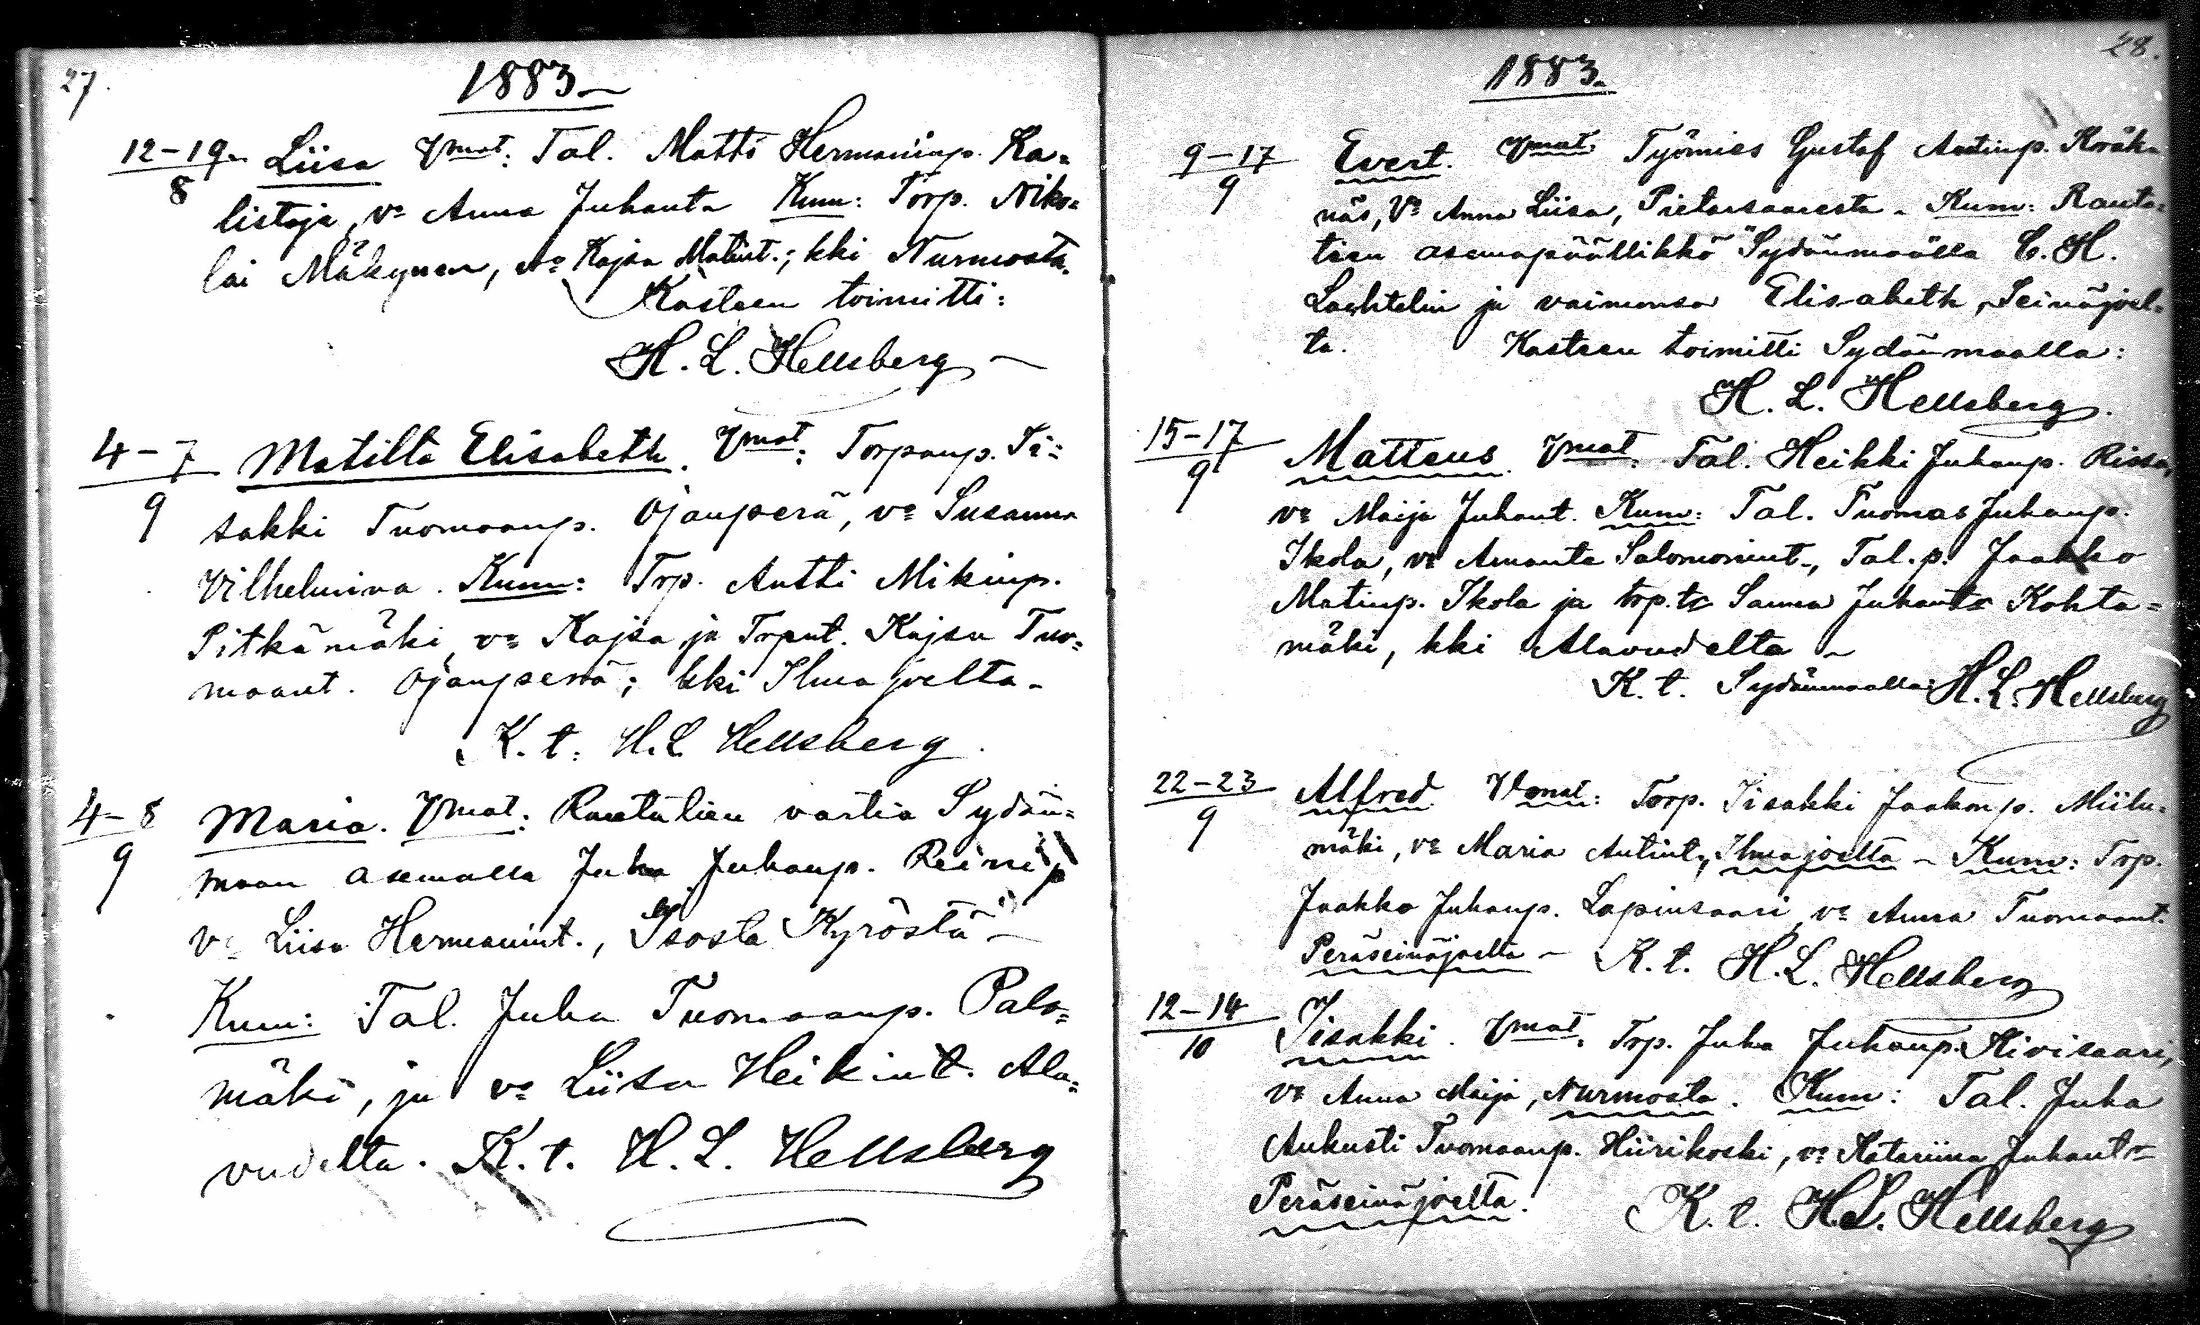 27.
1883
12-19 Liisa Vmat: Tal. Matts Hermanninp. Ka-
8
listaja, va Anna Juhant. Kum: Torp. Niko-
lai Mäkynen, va Kajsa Matint.; kki Nurmosta.
Kasteen toimitti:
H. L. Hellsberg
4-7 Matilta Elisabeth. Vmat: Torpanp. Ii-
9
sakki Tuomaanp. Ojanperä, va Susanna
Vilhelmina. Kum: Trp. Antti Mikinp.
Pitkämäki, va Kajsa ja Trpnt. Kajsa Tuo-
maant. Ojanperä; kki Ilmajoelta.
K. t. H. L Hellsberg.
4-8 Maria. Vmat: Rautatien vartia Sydän-
9
maan asemalla Juha Juhanp.
va Liisa Hermanint., Isosta Kyröstä
Kum: Tal. Juha Tuomaanp. Palo-
mäki, ja va Liisa Heikint. Ala-
vudelta. K. t. H. L. Hellsberg
28.
1883.
9-17 Evert. Vmat: Työmies Gustaf Antinp.
9
näs, Va Anna Liisa, Pietarsaaresta. Kum: Rauta-
tien asemapäällikkö Sydänmaalla C. H.
ja vaimonsa Elisabeth, Seinäjoel-
ta. Kasteen toimitti Sydänmaalla:
H. L. Hellsberg.
15-17 Matteus. Vmat: Tal. Heikki Juhanp. Rissa,
9
va Maija Juhant. Kum: Tal. Tuomas Juhanp.
Ikola, va Amanta Salomonint., Tal. p. Jaakko
Matinp. Ikola ja trp. tr Sanna Juhant. Kohta-
mäki, kki Alavudelta
K. t. Sydänmaalla: H. L. Hellsberg
22-23 Alfred Vmat: Torp. Iisakki Jaakonp. Miilu-
9
mäki, va Maria Antint, Ilmajoelta - Kum: Trp.
Jaakko Juhanp. Lapinsaari, va Anna Tuomaant.
Peräseinäjoelta - K. t. H. L. Hellsberg
12-14 Iisakki. Vmat: Trp. Juha Juhanp. Kivisaari,
10
va Anna Maija, Nurmosta. Kum: Tal. Juha
Aukusti Tuomaanp. Hiirikoski, va Katariina Juhant.
Peräseinäjoelta. K. t. H. L. Hellsberg